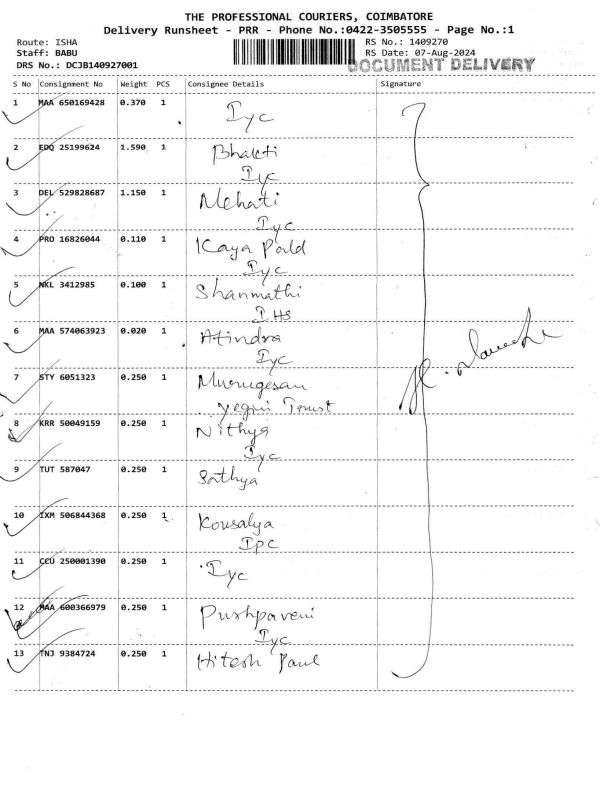 THE PROFESSIONAL COURIERS, COIMBATORE
Delivery Runsheet - PRR - Phone No.:0422-3505555 - Page No.:1
Route: ISHA RS No.: 1409270
Staff: BABU RS Date: 07-Aug-2024
DRS No.: DCJB140927001 DOCUMENT DELIVERY
S No Consignment No Weight PCS Consignee Details Signature
1 MAA 650169428 0.370 1 Iyc
2 EDQ 25199624 1.590 1 Bhakti
Iyc
3 DEL 529828687 1.150 1 Mehati
Iyc
4 PRO 16826044 0.110 1 Kaya
Iyc
5 NKL 3412985 0.100 1 Shanmathi
I.HS
6 MAA 574063923 0.020 1 Atindra
Iyc
7 STY 6051323 0.250 1 Murugesan
Trust
8 KRR 50049159 0.250 1 Nithya
Iyc
9 TUT 587047 0.250 1 Sathya
10 IXM 506844368 0.250 1 Kousalya
Ipc
11 CCU 250001390 0.250 1 Iyc
12 MAA 600366979 0.250 1 Pushpaveni
Iyc
13 TNJ 9384724 0.250 1 Hitesh Paul